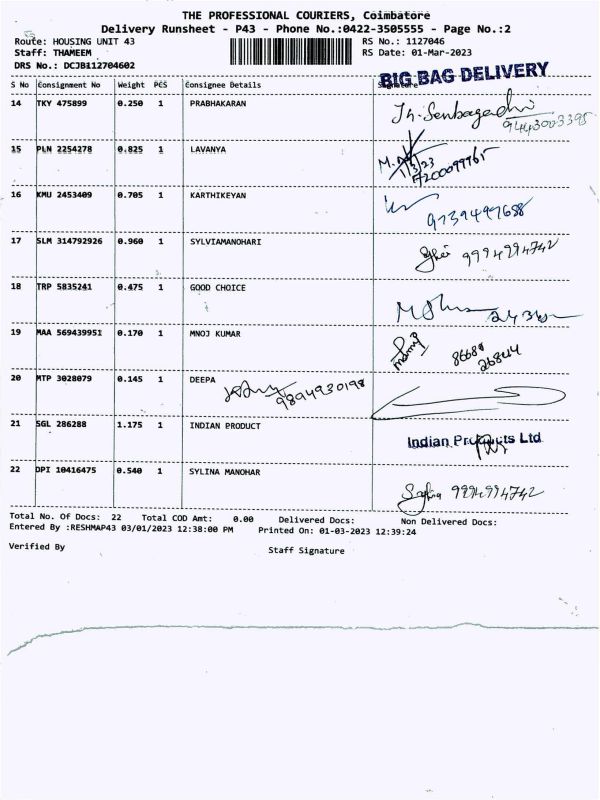 THE PROFESSIONAL COURIERS, Coimbatore
Delivery Runsheet - P43 - Phone No.:0422-3505555 - Page No.:2
Route: HOUSING UNIT 43 RS No.: 1127046
Staff: THAMEEM RS Date: 01-Mar-2023
DRS No.: DCJB112704602
BIG BAG DELIVERY
S No Consignment No Weight PCS Consignee Details Signature
14 TKY 475899 0.250 1 PRABHAKARAN
9443003395
15 PLN 2254278 0.825 1 LAVANYA
1/3/23
7200099765
16 KMU 2453409 0.705 1 KARTHIKEYAN
9739497658
17 SLM 314792926 0.960 1 SYLVIAMANOHARI 9994994742
18 TRP 5835241 0.475 1 GOOD CHOICE
19 MAA 569439951 0.170 1 MNOJ KUMAR
86688
26844
20 MTP 3028079 0.145 1 DEEPA
9894930198
21 SGL 286288 1.175 1 INDIAN PRODUCT
Indian Products Ltd
22 DPI 10416475 0.540 1 SYLINA MANOHAR
9994994742
Total No. Of Docs: 22 Total COD Amt: 0.00 Delivered Docs: Non Delivered Docs:
Entered By :RESHMAP43 03/01/2023 12:38:00 PM Printed On: 01-03-2023 12:39:24
Verified By Staff Signature